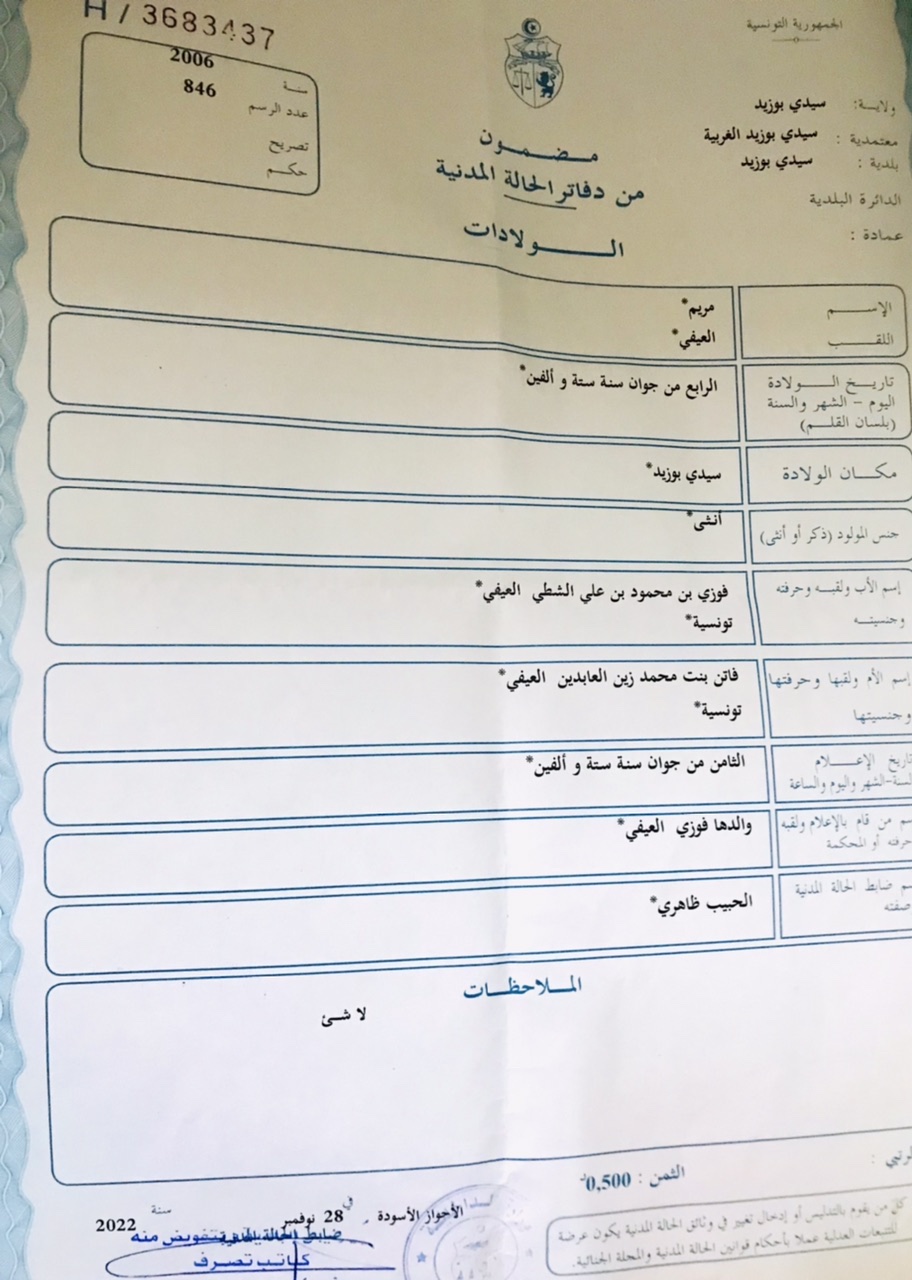 H / 3683437
الجمهورية التونسية
سنة 2006
عدد الرسم 846
تصريح
حكم
ولاية: سيدي بوزيد
معتمدية : سيدي بوزيد الغربية
بلدية : سيدي بوزيد
الدائرة البلدية
عمادة :
مضمون
من دفاتر الحالة المدنية
الولادات
الإسم مريم*
اللقب العيفي*
تاريخ الولادة الرابع من جوان سنة ستة و ألفين*
اليوم - الشهر والسنة
(بلسان القلم)
مكان الولادة سيدي بوزيد*
جنس المولود (ذكر أو أنثى) أنثى*
إسم الأب ولقبه وحرفته فوزي بن محمود بن علي الشطي العيفي*
وجنسيته تونسية*
إسم الأم ولقبها وحرفتها فاتن بنت محمد زين العابدين العيفي*
وجنسيتها تونسية*
تاريخ الإعلام الثامن من جوان سنة ستة و ألفين*
السنة-الشهر واليوم والساعة
من قام بالإعلام ولقبه والدها فوزي العيفي*
حرفته أو المحكمة
ضابط الحالة المدنية الحبيب ظاهري*
صفته
الملاحظات
لا شئ
الثمن : 0,500د
الأحواز الأسودة في 28 نوفمبر سنة 2022
ضابط الحالة المدنية بتفويض منه
كاتب تصرف
كل من يقوم بالتدليس أو إدخال تغيير في وثائق الحالة المدنية يكون عرضة
للتتبعات العدلية عملا بأحكام قوانين الحالة المدنية والمجلة الجنائية.